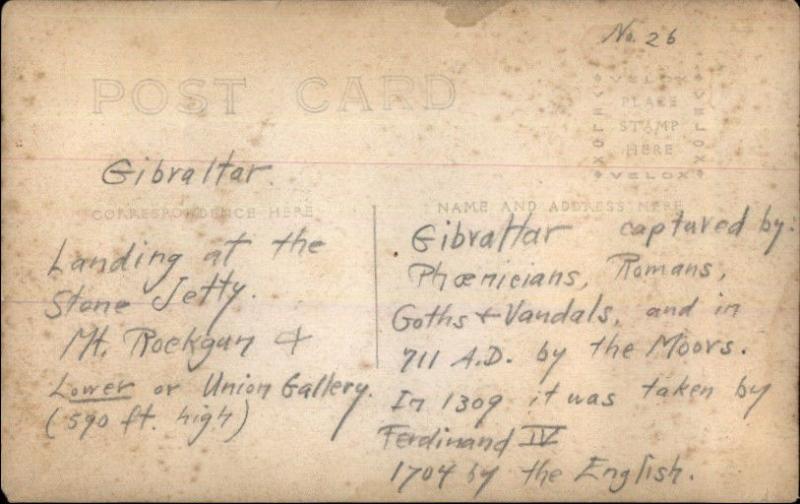 No. 26
POST CARD
VELOX
PLACE
STAMP
HERE
VELOX
VELOX
VELOX
Gibraltar.
CORRESPONDENCE HERE
Landing at the
Stone Jetty.
Mt. Rockgun &
Lower or Union Gallery.
(590 ft. high)
NAME AND ADDRESS HERE
Gibraltar captured by:
Phœnicians, Romans,
Goths + Vandals, and in
711 A.D. by the Moors.
In 1309 it was taken by
Ferdinand IV
1704 by the English.